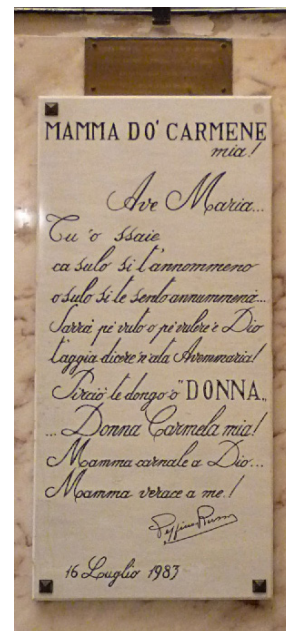 MAMMA DO' CARMENE
mia!
Ave Maria...
Tu 'o ssaie
ca sulo si t'annommeno
o sulo si te sento annummenà...
Sarrà pe' vuto o pe' vulere 'e Dio
t'aggia dicere 'n'ata Avemmaria!
Perciò te dongo o "DONNA"
... Donna Carmela mia!
Mamma carnale a Dio...
Mamma verace a me!
16 Luglio 1983